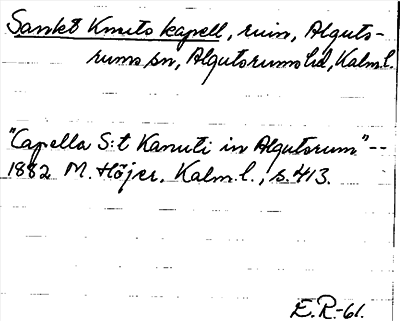 Sankt Knuts kapell, ruin, Alguts-
rums sn, Algutsrums hd, Kalm.l.
"Capella S:t Kanuti in Algutsrum" --
1882 M. Höjer, Kalm.l., s.413.
E.R-61.